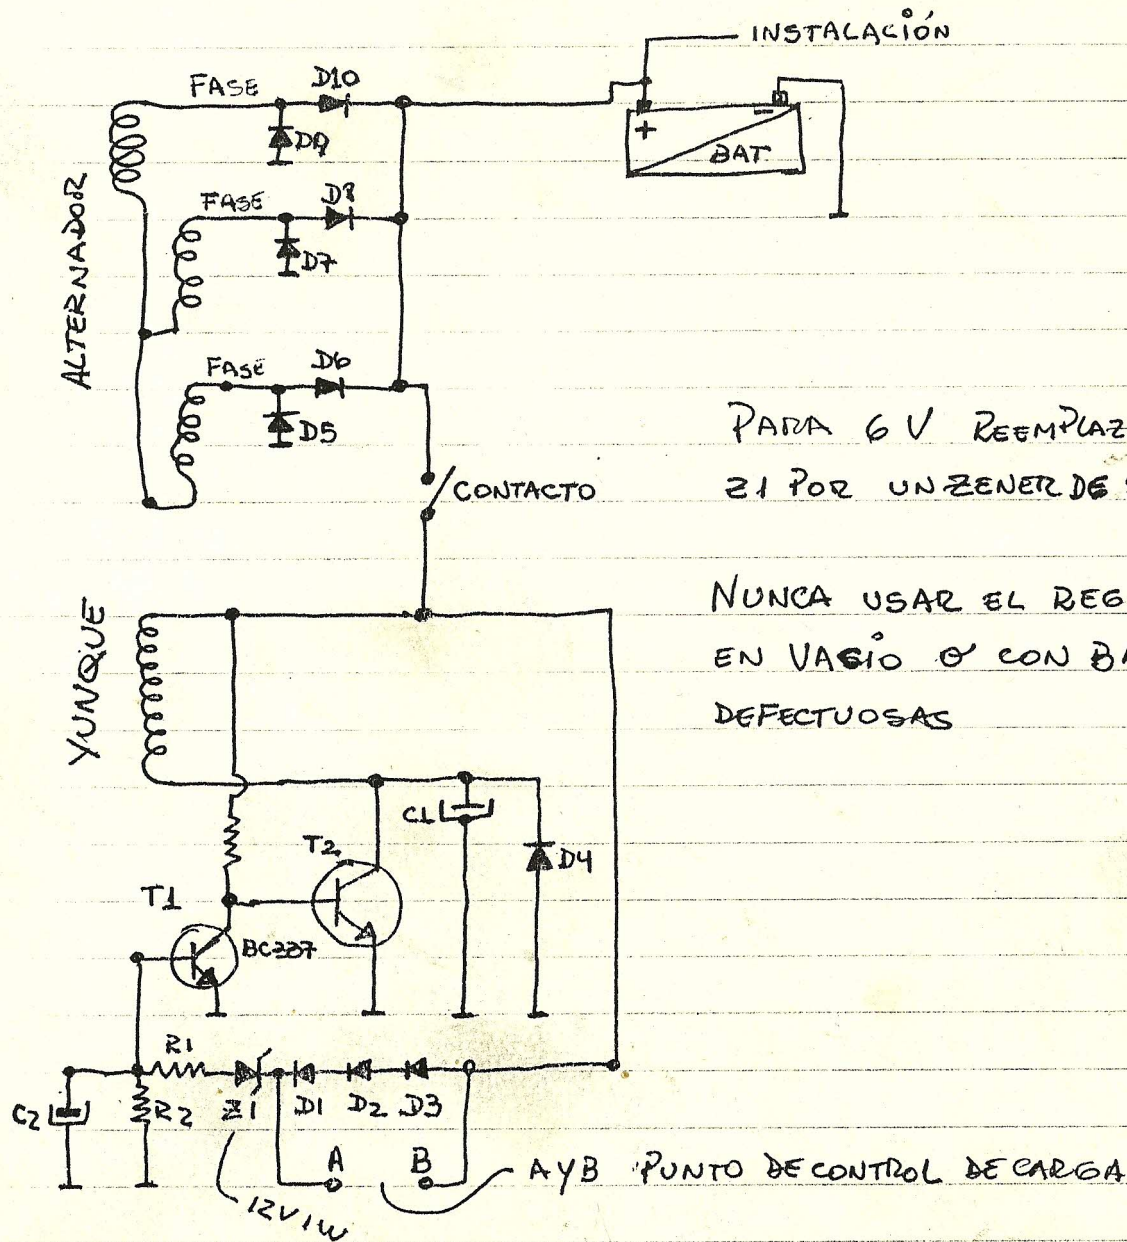 INSTALACIÓN
FASE
D10
D9
+
-
BAT
ALTERNADOR
FASE
D8
D7
FASE
D6
D5
CONTACTO
PARA 6 V REEMPLAZ
Z1 POR UN ZENER DE
NUNCA USAR EL REG
EN VASIO O CON BA
DEFECTUOSAS
YUNQUE
C1
D4
T2
T1
BC337
R1
C2
R2
Z1
D1
D2
D3
A
B
A Y B PUNTO DE CONTROL DE CARGA
12V 1W